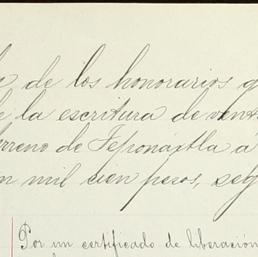 de los honorarios
la escritura de
de Teponaxtla á
mil cien pesos, seg
Por un certificado de liberación